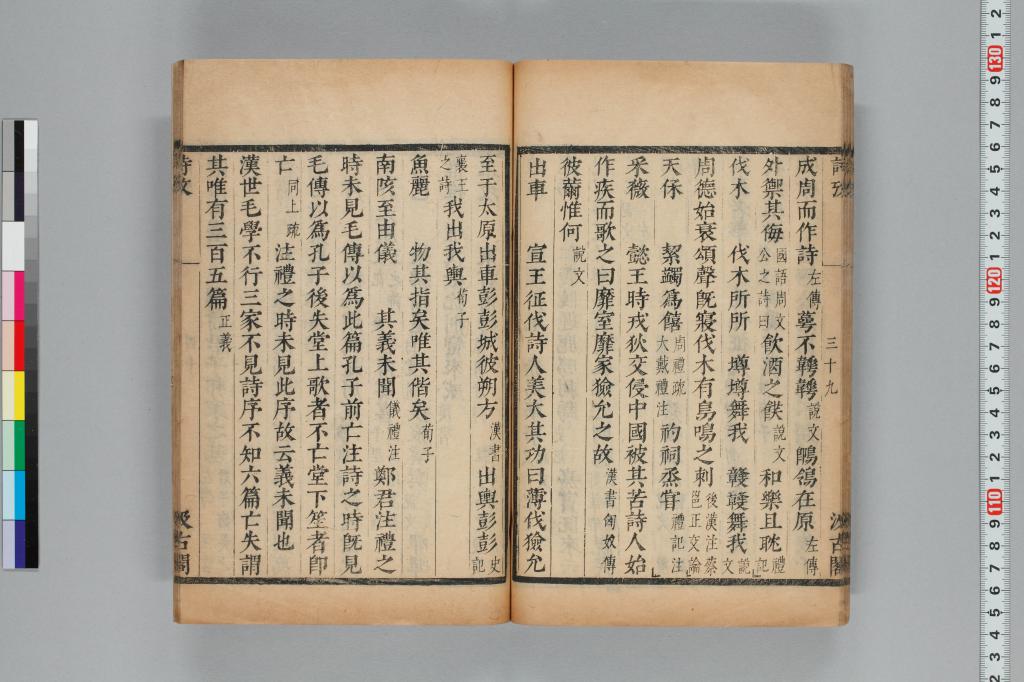 成周而作詩左傳萼不韡韡說文鶺鴒在原左傳
外禦其侮國語周文公之詩曰飲酒之饫說文和樂且耽禮記
伐木　伐木所所　墫墫舞我　竷竷舞我說文
周德始衰頌聲旣寢伐木有鳥鳴之刺後漢注蔡邕正交論
天保　絜蠲爲饎周禮疏大戴禮注礿祠烝甞禮記注
采薇　懿王時戎狄交侵中國被其苦詩人始
作疾而歌之曰靡室靡家獫允之故漢書匈奴傳
彼薾惟何說文
出車　宣王征伐詩人美大其功曰薄伐獫允
至于太原出車彭彭城彼朔方漢書出輿彭彭史記
襄王之詩我出我輿荀子
魚麗　物其指矣唯其偕矣荀子
南陔至由儀　其義未聞儀禮注鄭君注禮之
時未見毛傳以爲此篇孔子前亡注詩之時旣見
毛傳以爲孔子後失堂上歌者不亡堂下笙者卽
亡同上疏注禮之時未見此序故云義未聞也
漢世毛學不行三家不見詩序不知六篇亡失謂
其唯有三百五篇正義
詩攷
三十九
汲古閣
詩攷
汲古閣